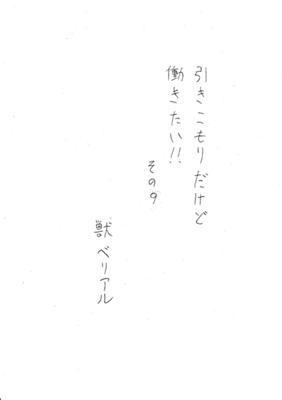 引きこもりだけど
働きたい!!
その9
獣ベリアル